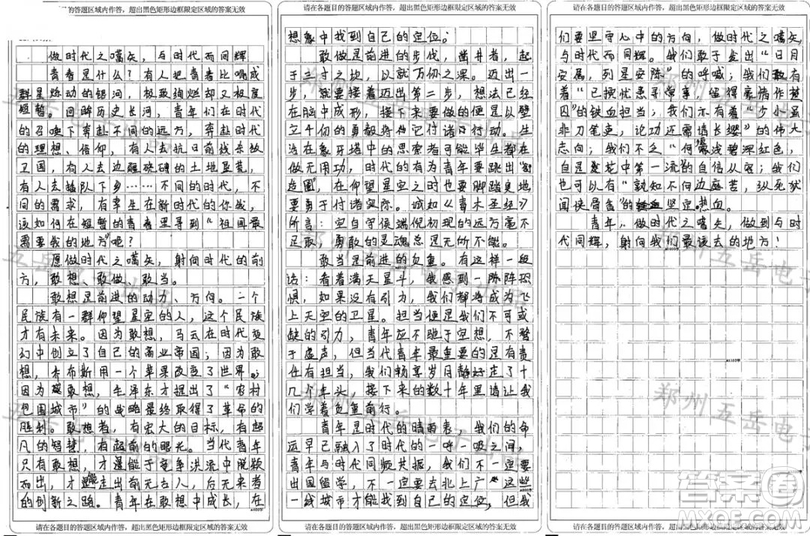 的答题区域内作答，超出黑色矩形边框限定区域的答案无效
做时代之嚆矢，与时代而同辉
青春是什么？有人把青春比喻成
群星燃动的银河，极致绚烂却又极度
短暂。回眸历史长河，青年们在时代
的召唤下奔赴不同的远方，奔赴时代
的理想、信仰，有人去抗日前线杀敌
卫国，有人去边疆硗确的土地垦荒，
有人去插队下乡……不同的时代，不
同的需求，有幸生在新时代的你我，
该如何在短暂的青春里寻到“祖国最
需要我的地方”呢？
愿做时代之嚆矢，射向时代的前
方，敢想、敢做、敢当。
敢想是前进的动力、方向。一个
民族有一群仰望星空的人，这个民族
才有未来。因为敢想，马云在时代变
幻中创立了自己的商业帝国；因为敢
想，乔布斯用一个苹果改变了世界；
因为敢想，毛泽东才提出了“农村
包围城市”的战略最终取得了革命的
胜利。敢想者，有宏大的目标，有超
凡的智慧，有超前的眼光。当代青年
只有敢想，才能于竞争洪流中脱颖
而出，才能走出前无古人，后无来者
的创新之路。青年在敢想中成长，在
请在各题目的答题区域内作答，超出黑色矩形边框限定区域的答案无效
请在各题目的答题区域内作答，超出黑色矩形边框限定区域的答案无效
想象中找到自己的定位。
敢做是前进的步伐，凿井者，起
于三寸之坎，以就万仞之深。迈出一
步，就要接着迈出第二步，想象已经
在脑中成形，接下来要做的便是以壁
立千仞的勇毅将它付诸行动。生
活在象牙塔中的思索者可能毕生都在
做无用功，时代的有为青年要跳出“割
造圈”，在仰望星空之时也要脚踏实地
要勇于付诸实际。诚如《青木正经》
所言：空自守候端倪初现的远方毫不
足取，勇敢的灵魂总是无所不能。
敢当是前进的负重。有这样一段
话：看着满天星斗，我感到一阵阵恐
惧，如果没有引力，我们都将成为飞
上天空的卫星。担当便是我们不可或
缺的引力，青年应不驰于空想，不骛
于虚声，但当代青年最重要的是有责
任有担当，我们畅享岁月静好走了十
几个年头，接下来的数十年里请让我
们学着负重前行。
青年是时代的晴雨表，我们的命
运早已融入了时代的一呼一吸之间，
青年与时代同频共振，我们不一定要
出国留学，不一定要去北上广这些
一线城市才能找到自己的定位，但我
请在各题目的答题区域内作答，超出黑色矩形边框限定区域的答案无效
请在各题目的答题区域内作答，超出黑色矩形边框限定区域的答案无效
们要坚定心中的方向，做时代之嚆矢
与时代而同辉。我们敢于金出“日月
安属，列星安陈”的呼喊；我们敢有
着“已携忧患寻常事，留得豪情作楚
囚”的铁血担当；我们亦有着“少小虽
非刀笔吏，论功还需请长缨”的伟大
志向；我们不乏“何须浅碧深红色，
自是花中第一流的自信从容；我们
也可以有“孰知不向边庭苦，纵死犹
闻侠骨香”的铁血坚定热血。
青年，做时代之嚆矢，做到与时
代同辉，射向我们最该去的地方！
郑州五岳电
答案圈
MXQE.COM